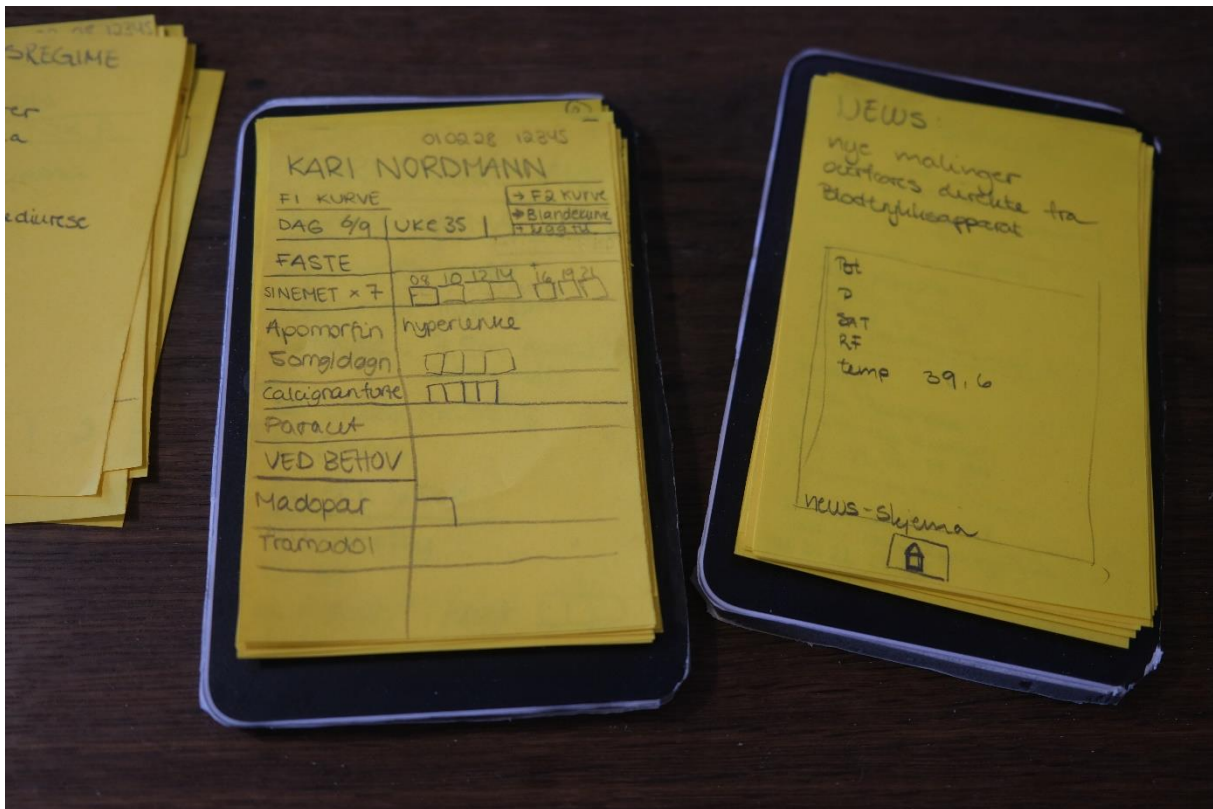 SREGIME
er
a
diurese
010228 12345
KARI NORDMANN
F1 KURVE
→ F2 KURVE
→ Blandekurve
DAG 6/9 UKE 35
FASTE
SINEMET x 7
08 10 12 14 16 19 21
Apomorfin
50mg/døgn
Calcigran forte
Paracet
VED BEHOV
Madopar
Tramadol
NEWS
nye målinger
overføres direkte fra
Blodtrykksapparat
SAT
RF
temp 39,6
news-skjema